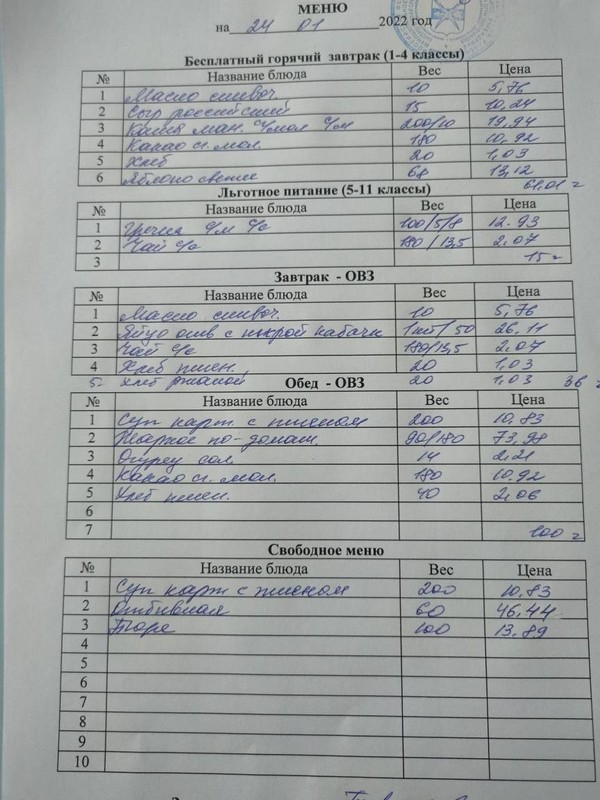 МЕНЮ
на 24 01 2022 год
Бесплатный горячий завтрак (1-4 классы)
№ Название блюда Вес Цена
1 Масло сливоч. 10 5,76
2 Сыр российский 15 10,24
3 Каша ман. с/мол с/м 200/10 19,94
4 Какао сг. мол. 180 10,92
5 Хлеб 20 1,03
6 Яблоко свежее 68 13,12
61,01 г
Льготное питание (5-11 классы)
№ Название блюда Вес Цена
1 Гречка с/м с/с 100/5/8 12.93
2 Чай с/с 180/13,5 2.07
3 15 г
Завтрак - ОВЗ
№ Название блюда Вес Цена
1 Масло сливоч. 10 5,76
2 Яйцо отв с икрой кабачк 1шт/50 26.11
3 Чай с/с 180/13,5 2.07
4 Хлеб пшен. 20 1,03
5. Хлеб ржаной 20 1,03 36 г
Обед - ОВЗ
№ Название блюда Вес Цена
1 Суп карт. с пшеном 200 10.83
2 Жаркое по-домаш 90/180 73,98
3 Огурец сол. 14 2.21
4 Какао сг. мол. 180 10.92
5 Хлеб пшен. 40 2,06
6
7 100 г
Свободное меню
№ Название блюда Вес Цена
1 Суп карт с пшеном 200 10,83
2 Отбивная 60 46,44
3 Пюре 100 13.89
4
5
6
7
8
9
10